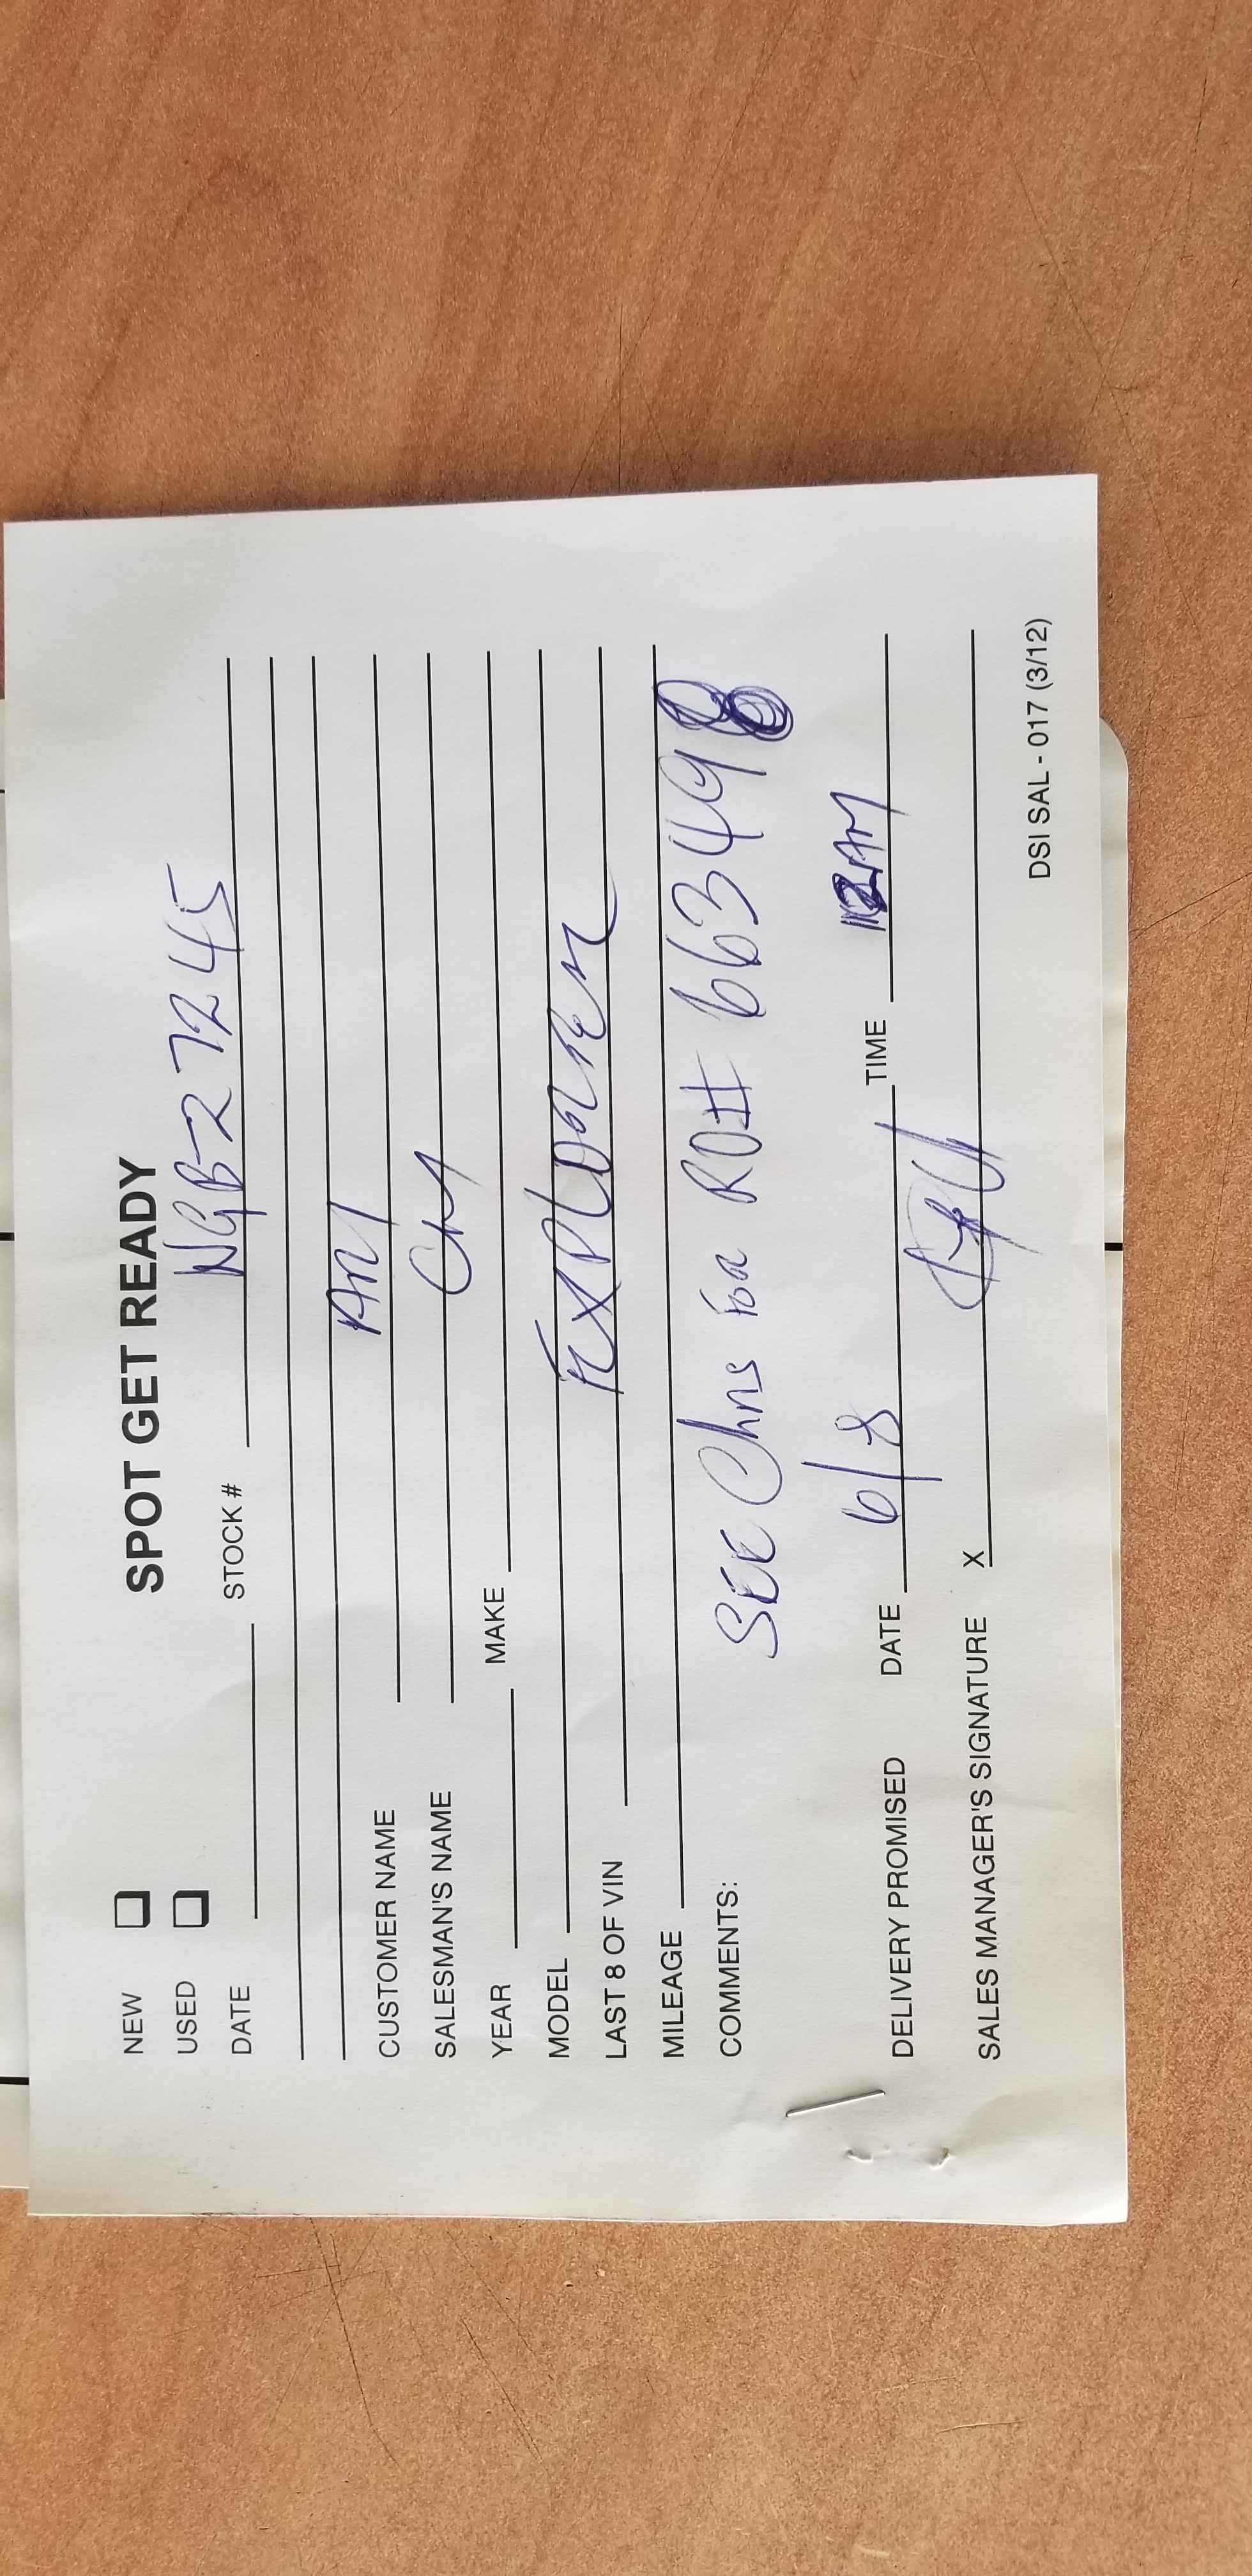 SPOT GET READY
NEW
USED
DATE STOCK # NGB-27245
CUSTOMER NAME
SALESMAN'S NAME
YEAR MAKE
MODEL
LAST 8 OF VIN EXPLORER
MILEAGE
COMMENTS: SEE Chris For RO# 663498
DELIVERY PROMISED DATE 6/8 TIME AM
SALES MANAGER'S SIGNATURE X
DSI SAL - 017 (3/12)